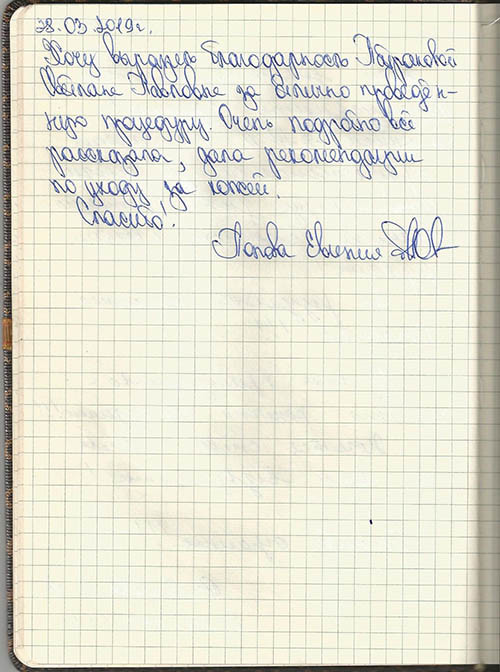 28.03.2019г.
Хочу выразить благодарность
Светлане Павловне за отлично проведён-
ную процедуру. Очень подробно всё
рассказала, дала рекомендации
по уходу за кожей.
Спасибо!
Попова Евгения